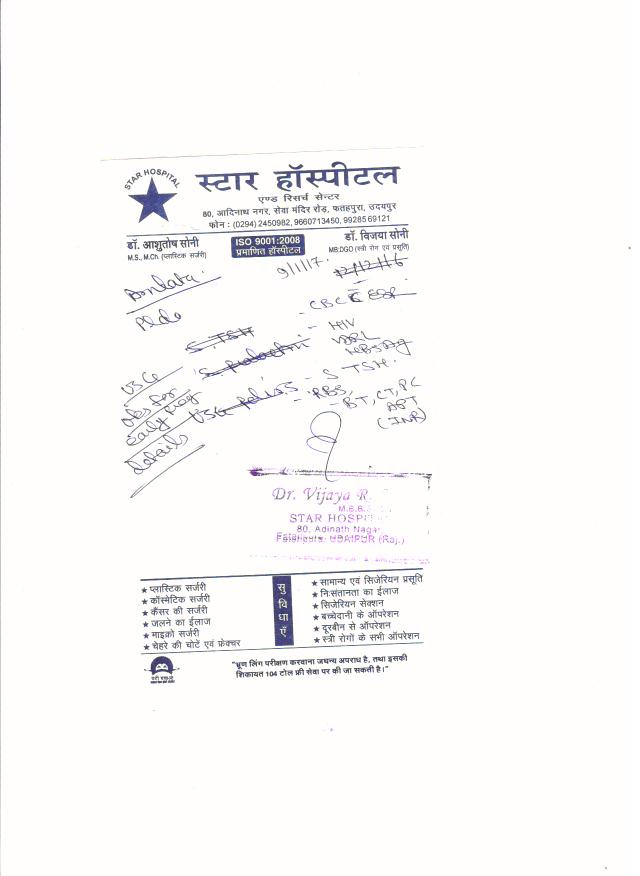 STAR HOSPITAL
स्टार हॉस्पीटल
एण्ड रिसर्च सेन्टर
80, आदिनाथ नगर, सेवा मंदिर रोड़, फतहपुरा, उदयपुर
फोन : (0294) 2450982, 9660713450, 9928569121
डॉ. आशुतोष सोनी
M.S., M.Ch. (प्लास्टिक सर्जरी)
ISO 9001:2008
प्रमाणित हॉस्पीटल
डॉ. विजया सोनी
MB;DGO (स्त्री रोग एवं प्रसूति)
9/1/17.
12/12/16
- CBC ESR
S. TSH
- HIV
VDRL
HBsAg
- S TSH.
USG
Obs for
Early Preg
Details
USG Pelvis
- RBS,
- BT, CT, PC
APT
(INR)
Dr. Vijaya R.
M.B.B.
STAR HOSPI
80, Adinath Nagar
Fatehpura, UDAIPUR (Raj.)
सुविधाएँ
★ प्लास्टिक सर्जरी
★ कॉस्मेटिक सर्जरी
★ कैंसर की सर्जरी
★ जलने का ईलाज
★ माइक्रो सर्जरी
★ चेहरे की चोटें एवं फ्रेक्चर
★ सामान्य एवं सिजेरियन प्रसूति
★ निःसंतानता का ईलाज
★ सिजेरियन सेक्शन
★ बच्चेदानी के ऑपरेशन
★ दूरबीन से ऑपरेशन
★ स्त्री रोगों के सभी ऑपरेशन
"भ्रूण लिंग परीक्षण करवाना जघन्य अपराध है, तथा इसकी
शिकायत 104 टोल फ्री सेवा पर की जा सकती है।"